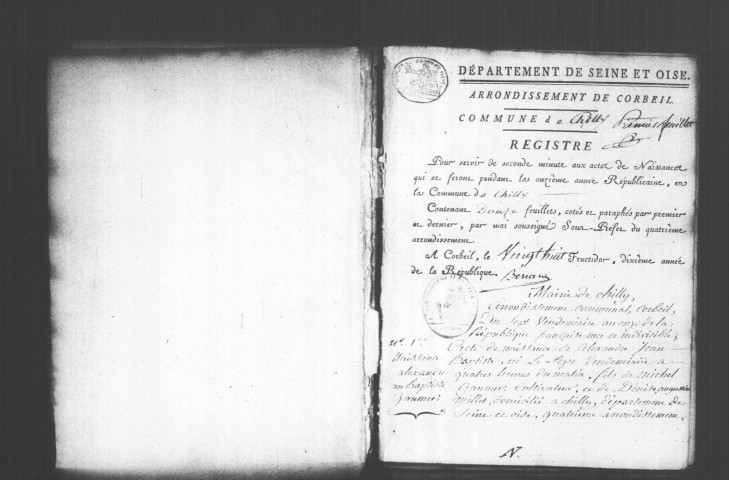 DÉPARTEMENT DE SEINE ET OISE.
ARRONDISSEMENT DE CORBEIL.
COMMUNE de Chilly
Premier feuillet
REGISTRE
Pour servir de seconde minute aux actes de Naissances
qui se feront pendant la onzième année Républicaine, en
la Commune de Chilly
Contenant Douze feuillets, cotés et paraphés par premier
et dernier, par moi soussigné Sous-Préfet du quatrième
arrondissement.
A Corbeil, le Vingt huit Fructidor, dixième année
de la République.
Mairie de Chilly,
arrondissement communal, Corbeil,
Du sept Vendemiaire an onze de la
République française une et indivisible,
acte de naissance de Alexandre Jean
Baptiste, né le sept Vendemiaire a
quatre heures du matin, fils de michel
Gaumer, cultivateur, et de Dénise, augustine
millet, domicilié a chilly, département de
Seine et oise, quatrième arrondissement,
N°. 1er
Naissance
alexandre
jean baptiste
Gaumer
N.